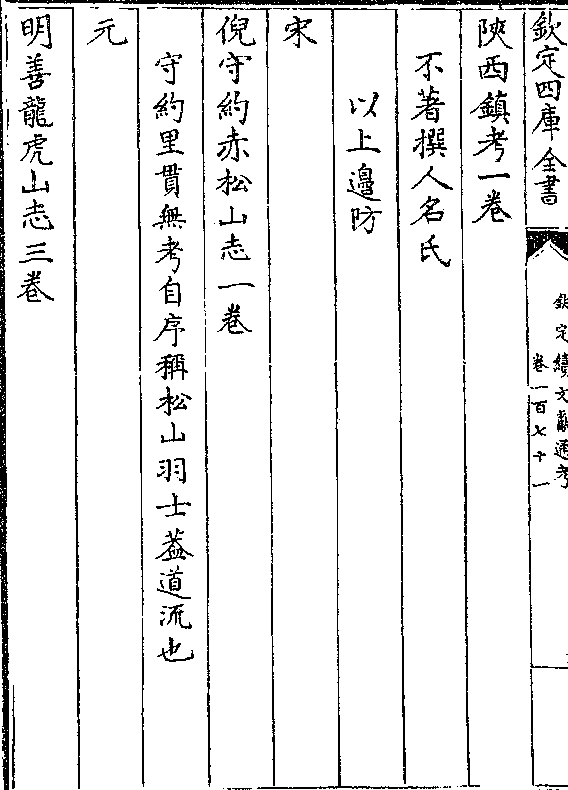 欽定四庫全書
欽定續文獻通考
卷一百七十一
陝西鎮考一卷
不著撰人名氏
以上邊防
宋
倪守約赤松山志一卷
守約里貫無考自序稱松山羽士葢道流也
元
明善龍虎山志三卷